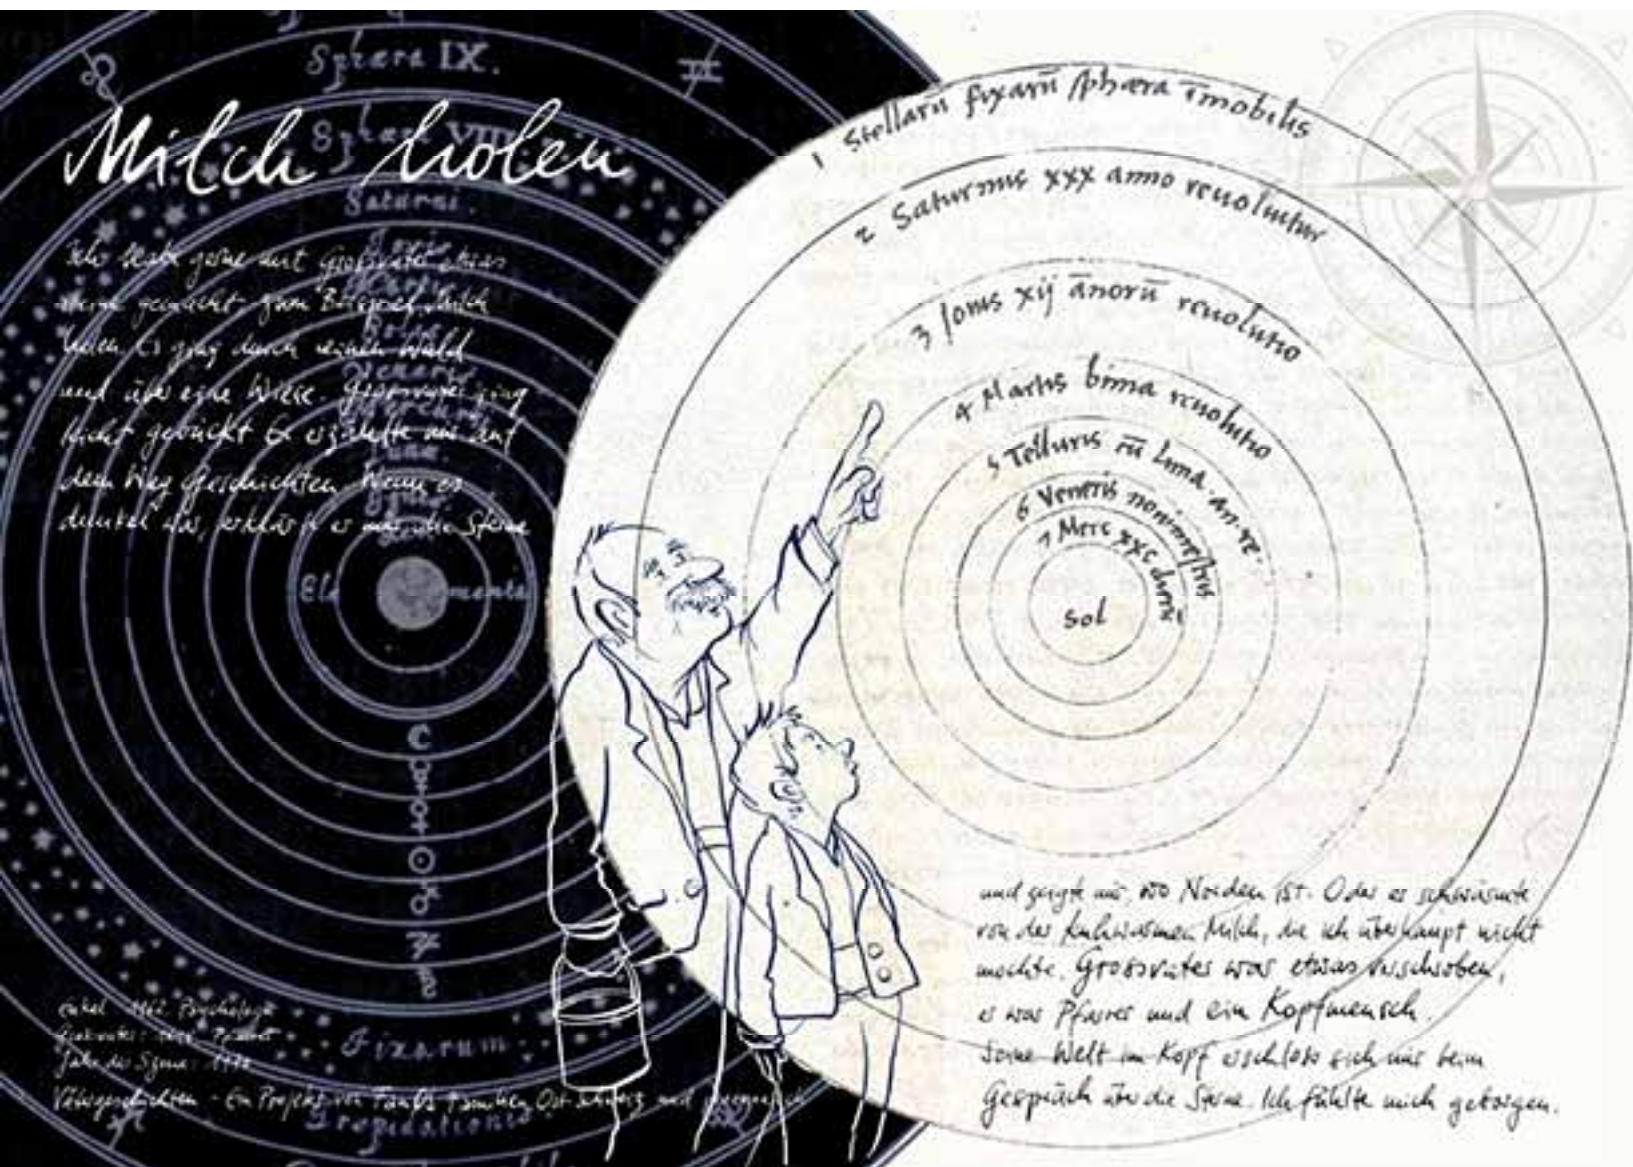 Sphæra IX.
Sphæra VIII.
Milch holen
Saturni.
Ich habe gerne mit Grossvater etwas
gemacht zum Beispiel Milch
holen. Es ging durch einen Wald
und über eine Wiese. Grossvater ging
leicht gebückt Er erzählte mir auf
dem Weg Geschichten. Wenn es
dunkel war, erklärte er mir die Sterne
Ele menta
Fixarum
Trepidationis
Enkel: Psychologe
Grossvater: Pfarrer
Jahr der Szene:
Vätergeschichten - Ein Projekt von Ostschweiz und
1 Stellarū fixarū sphæra īmobilis
2 Saturnus xxx anno reuoluitur
3 Iouis xij ānorū reuolutio
4 Martis bima reuolutio
5 Telluris cū Luna · an · re ·
6 Veneris nonimestris
7 Merc xxc dierū
Sol
und zeigte mir, wo Norden ist. Oder er schwärmte
von der kuhwarmen Milch, die ich überhaupt nicht
mochte. Grossvater war etwas verschroben,
er war Pfarrer und ein Kopfmensch.
Seine Welt im Kopf erschloss sich mir beim
Gespräch über die Sterne. Ich fühlte mich geborgen.